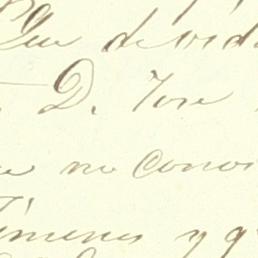 Que devida
D. Jose
no conos
Jimenes y q